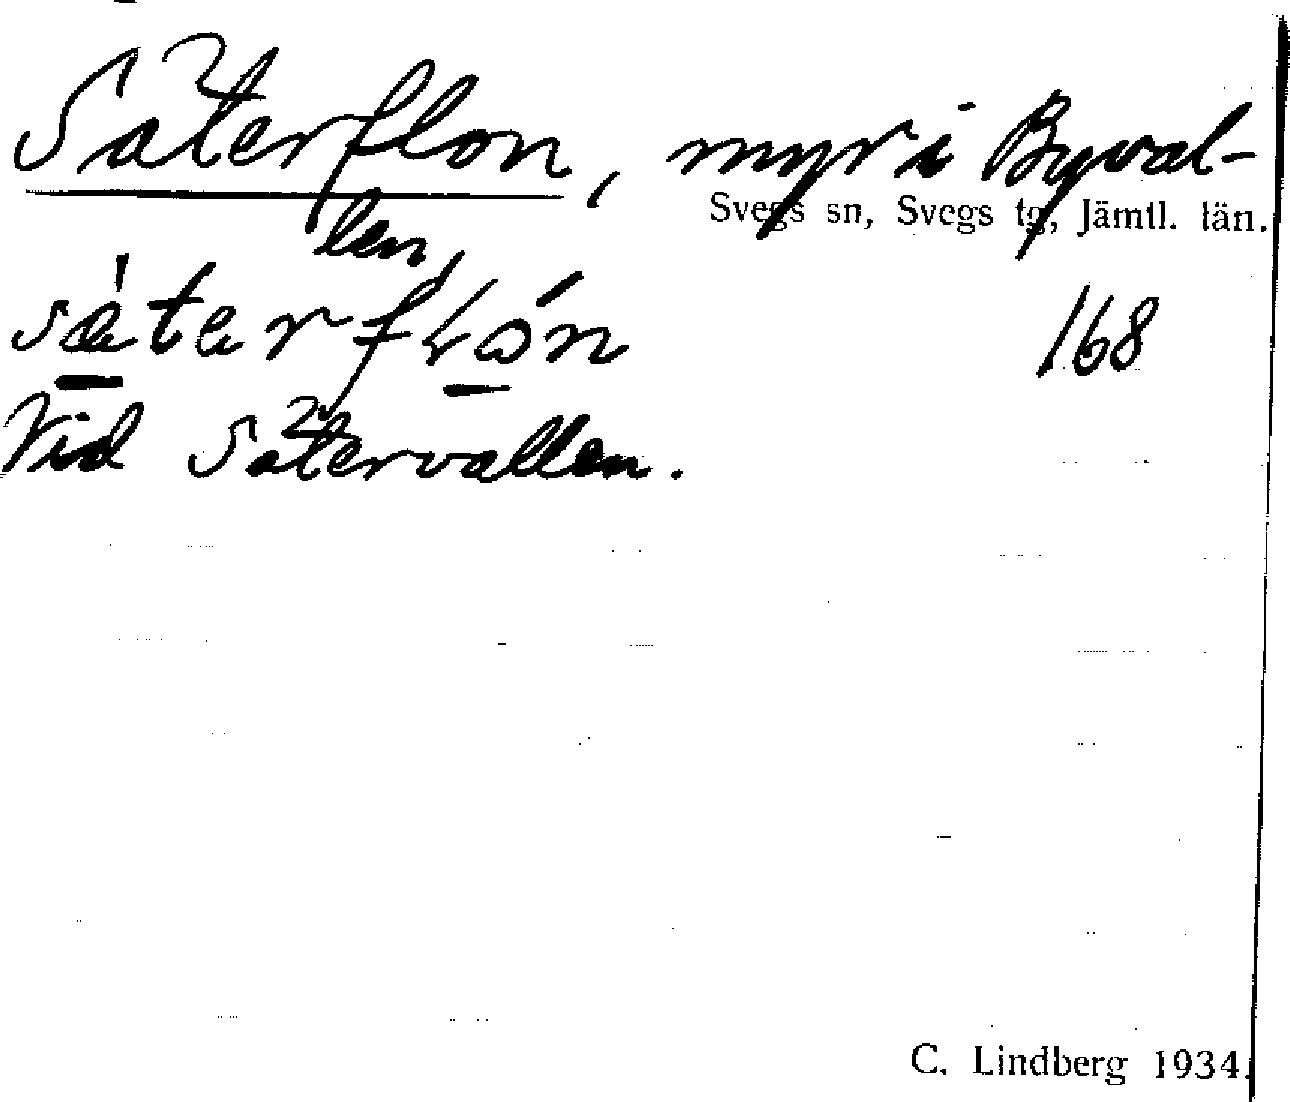 Säterflon, myr i Byval-
Svegs sn, Svegs tg, Jämtl. län.
len,
168
Vid Sätervallen.
C. Lindberg 1934.